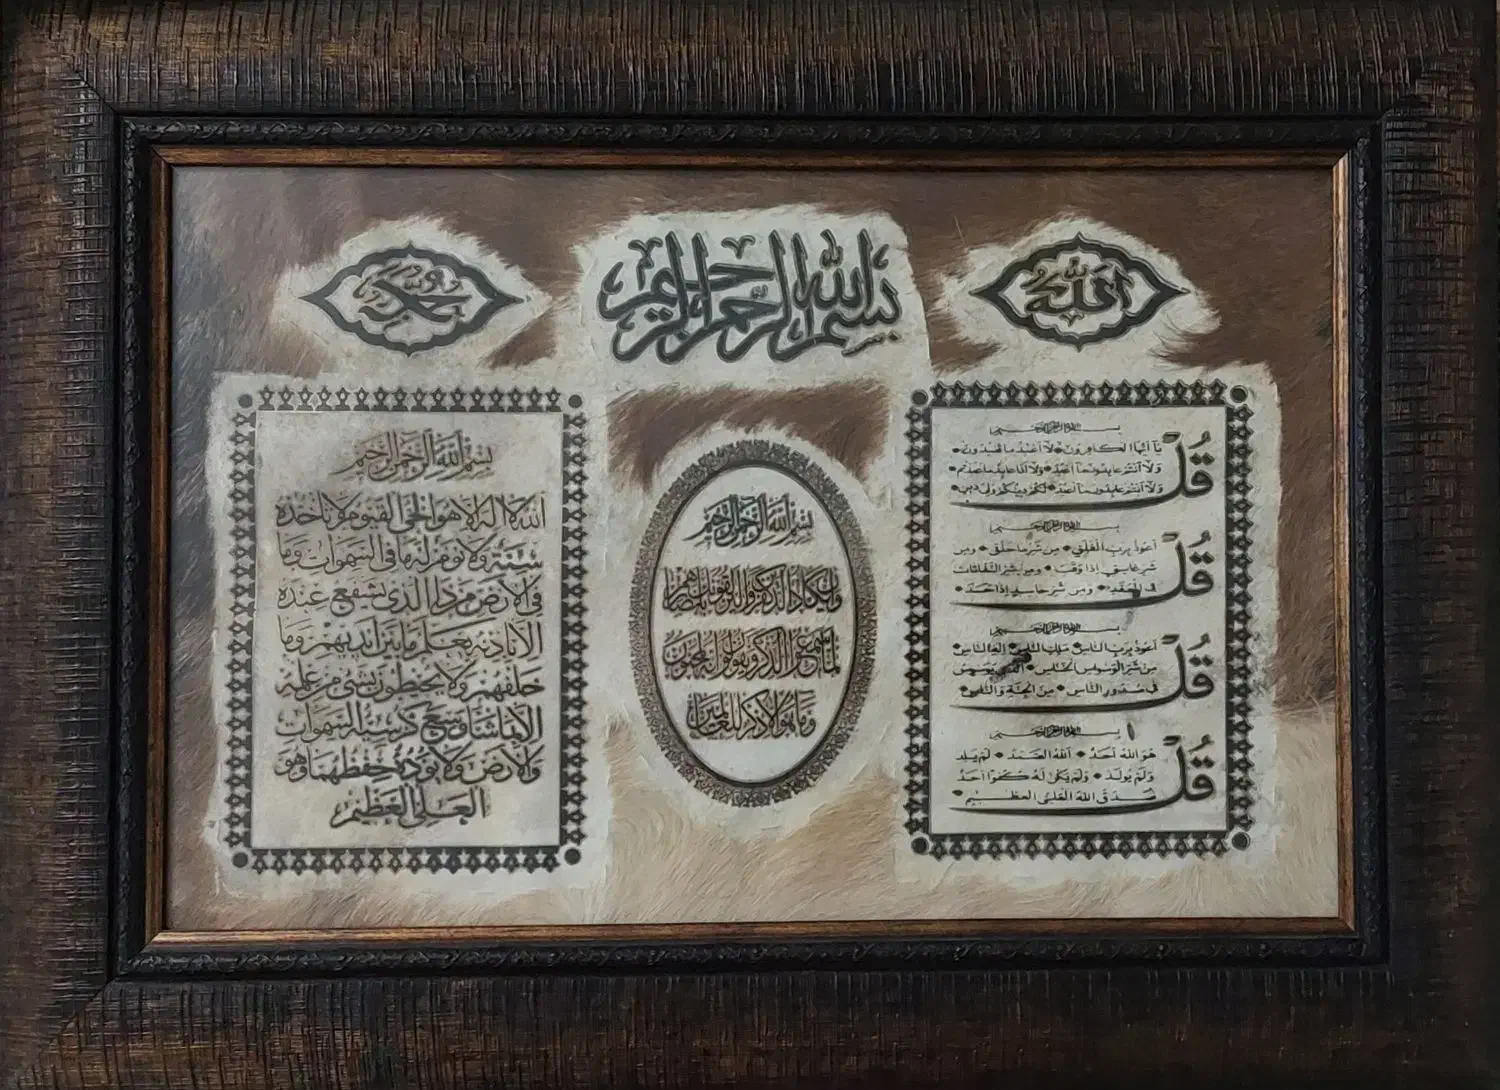 الله
بسم الله الرحمن الرحيم
محمد
بسم الله الرحمن الرحيم
قل
يا أيها الكافرون • لا أعبد ما تعبدون •
ولا أنتم عابدون ما أعبد • ولا أنا عابد ما عبدتم •
ولا أنتم عابدون ما أعبد • لكم دينكم ولي دين •
بسم الله الرحمن الرحيم
قل
أعوذ برب الفلق • من شر ما خلق • ومن
شر غاسق إذا وقب • ومن شر النفاثات
في العقد • ومن شر حاسد إذا حسد •
بسم الله الرحمن الرحيم
قل
أعوذ برب الناس • ملك الناس • إله الناس
من شر الوسواس الخناس • الذي يوسوس
في صدور الناس • من الجنة والناس •
بسم الله الرحمن الرحيم
قل
هو الله أحد • الله الصمد • لم يلد
ولم يولد • ولم يكن له كفوا أحد
صدق الله العلي العظيم •
بسم الله الرحمن الرحيم
وإن يكاد الذين كفروا ليزلقونك بأبصارهم
لما سمعوا الذكر ويقولون إنه لمجنون
وما هو إلا ذكر للعالمين
بسم الله الرحمن الرحيم
الله لا إله إلا هو الحي القيوم لا تأخذه
سنة ولا نوم له ما في السموات وما
في الأرض من ذا الذي يشفع عنده
إلا بإذنه يعلم ما بين أيديهم وما
خلفهم ولا يحيطون بشيء من علمه
إلا بما شاء وسع كرسيه السموات
والأرض ولا يؤده حفظهما وهو
العلي العظيم